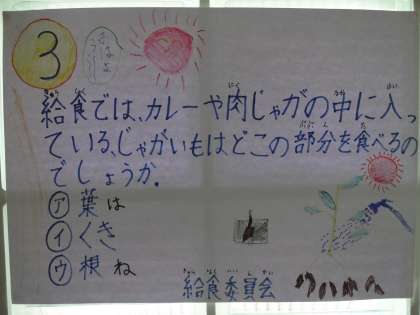 3
給食では、カレーや肉じゃがの中に入っ
ている、じゃがいもはどこの部分を食べるの
でしょうか。
ア 葉は
イ くき
ウ 根ね
給食委員会